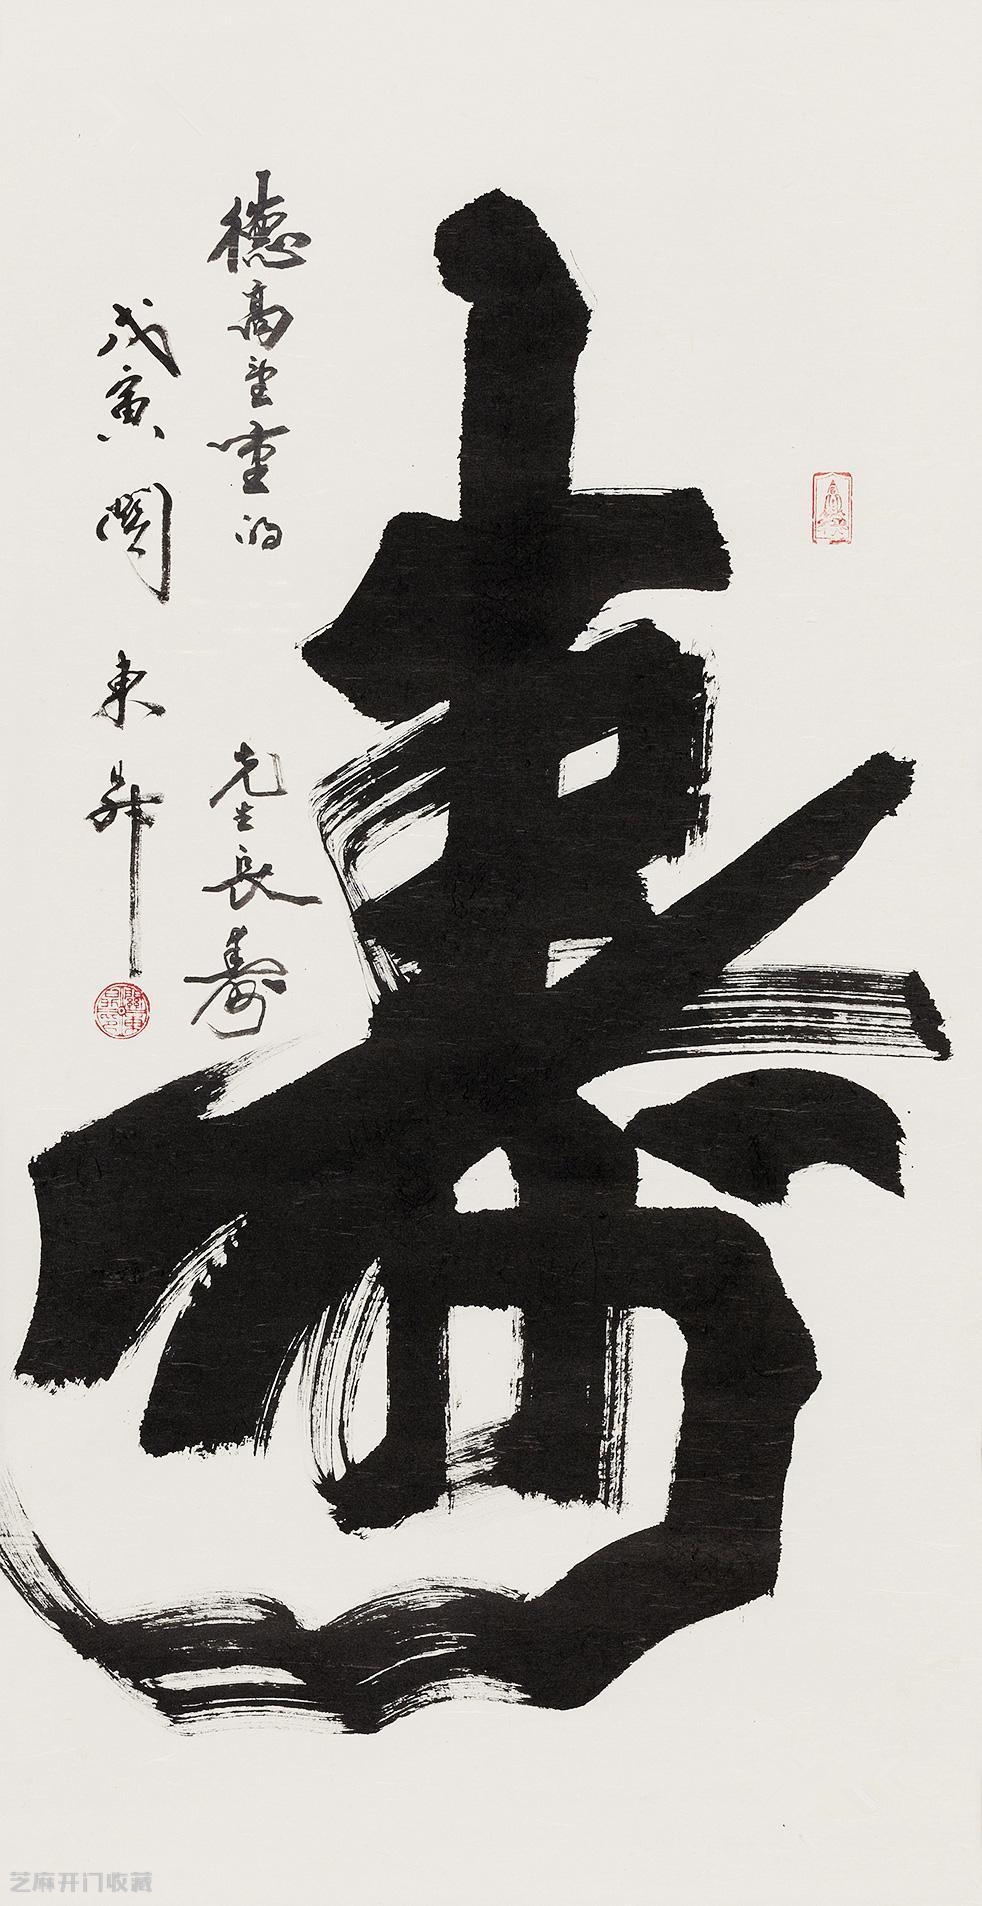 壽
德高望重的 先生長壽
戊寅關東昇
芝麻开门收藏